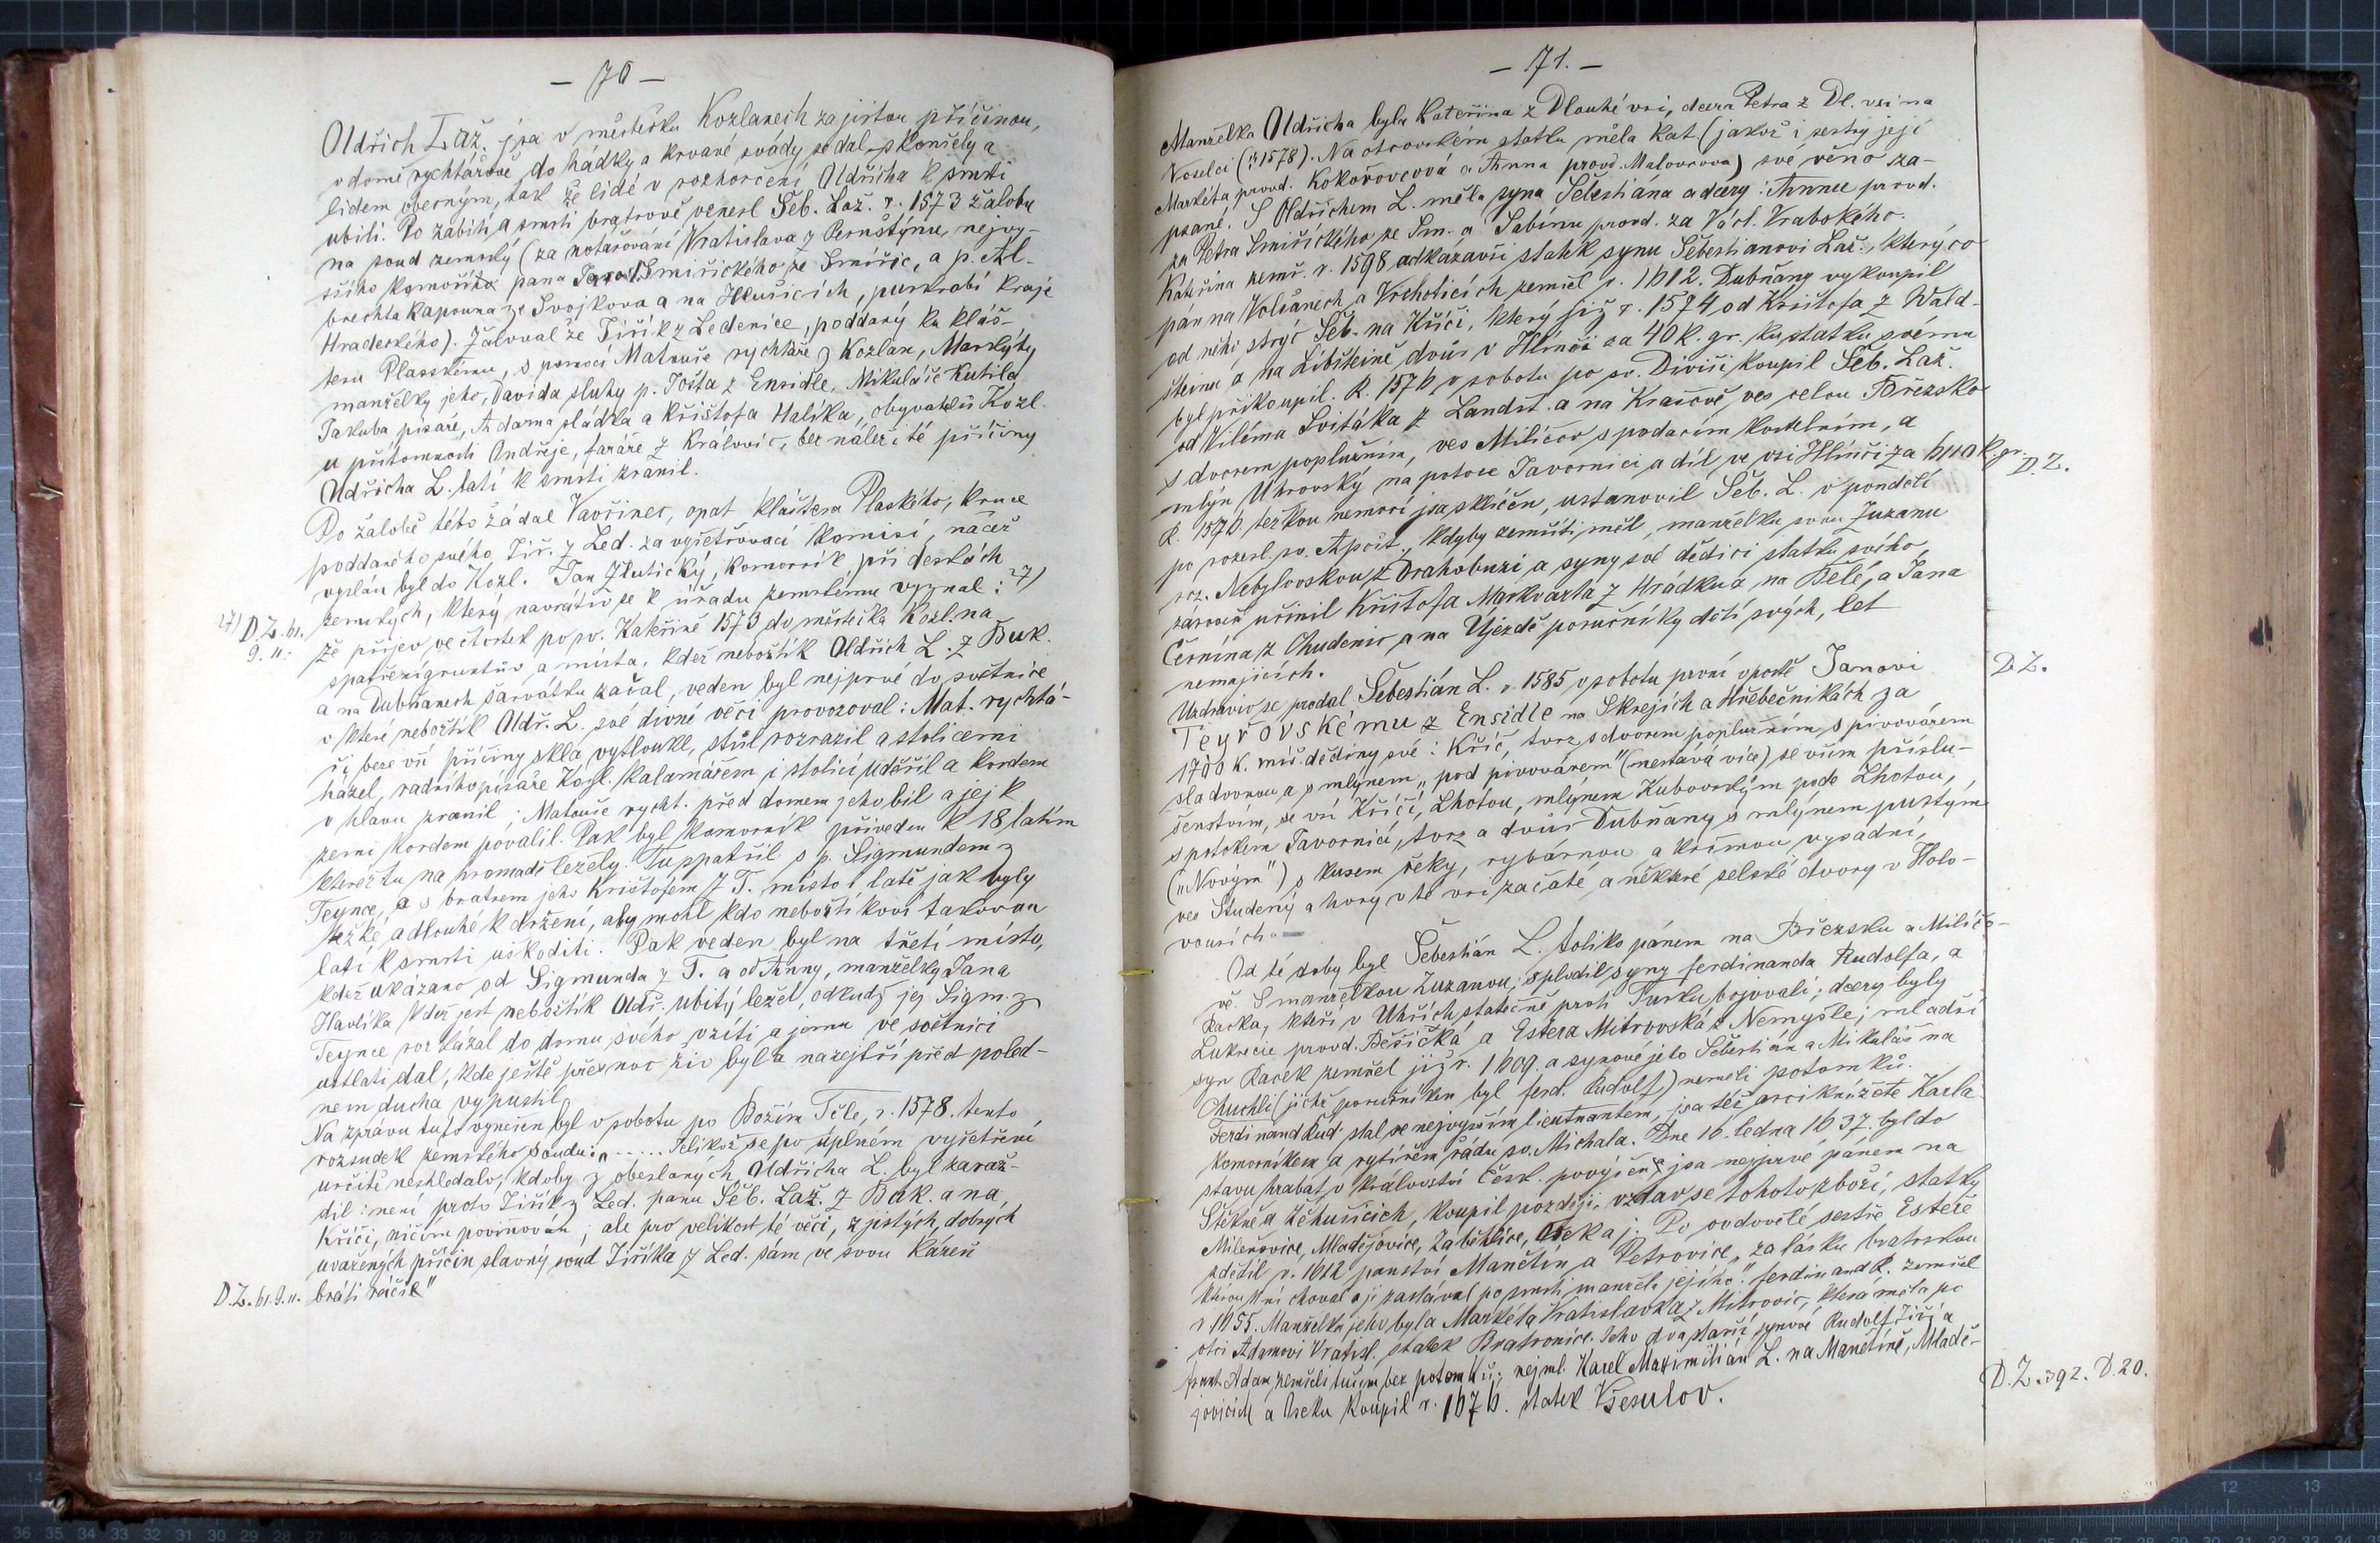 — 70 —
Oldřich Laž. jsa v městečku Kozlanech za jistou příčinou,
v domě rychtářově do hádky a krvavé svády se dal s konšely a
lidem oberným, tak že lidé v rozhorčení Oldřicha k smrti
ubili. Po zabití a smrti bratrově vznesl Šeb. Laž. r. 1573 žalobu
na soud zemský (za notářování Vratislava z Pernštýna, nejvy-
ššího komořího pana Smiřického ze Smiřic, a p. Al-
brechta Kapouna ze Svojkova a na Hlušicích, purkrabí kraje
Hradeckého). Žaloval že Jiřík z Ledenice, poddaný ku kláš-
teru Plasskému, s pomocí Matouše rychtáře z Kozlan, Markýty
manželky jeho, Davida sluhy p. Jošta z Ensidle, Mikuláše Kutila
Jakuba písaře, Adama sládka a Křištofa Halíka, obyvatelů Kozl.
u přítomnosti Ondřeje, faráře z Královic, bez náležité příčiny
Oldřicha L. latí k smrti zranil.
Po žalobě této žádal Vavřinec, opat kláštera Plaského, krale
poddaného svého Jiř. z Led. za vyšetřovací komisi, načež
vyslán byl do Kozl. Jan Žlutický, komorník při deskách
zemských, který navrátiv se k úřadu zemskému vyznal: 27)
27) D.Z. 61.
9. 11.
že přijev ve čtvrtek po sv. Kateřině 1573 do městečka Kozl. na
spatření gruntův a místa, kdež nebožtík Oldřich L. z Buk.
a na Dubňanech šarvátku začal, veden byl nejprvé do světnice
v které nebožtík Oldř. L. své divné věci provozoval: Mat. rychtá-
ři beze vší příčiny skla vytloukl, stůl rozrazil a stolicemi
házel, radního písaře Kozl. kalamářem i stolicí udeřil a kordem
v hlavu zranil; Matouše rycht. před domem jeho bil a jej k
zemi kordem povalil. Pak byl komorník přiveden k 18 latím
kteréž tu na hromadě ležely. Tu spatřil s p. Sigmundem z
Teynce, a s bratrem jeho Kristofem z T. místo i latě jak byly
těžké a dlouhé k držení, aby mohl kdo nebožtíkovi takovou
latí k smrti uškoditi. Pak veden byl na třetí místo,
kdež ukázáno od Sigmunda z T. a od Anny, manželky Jana
Havlíka kdež jest nebožtík Oldř. ubitý ležel, odkudž jej Sigm. z
Teynce rozkázal do domu svého vzíti a jemu ve světnici
ustlati dal, kde ještě přes noc živ byl a nazejtří před poled-
nem ducha vypustil
Na zprávu tuto vynešen byl v sobotu po Božím Těle, r. 1578. tento
rozsudek zemského soudu: „ . . . . . Jelikož se po úplném vyšetření
určitě neshledalo, kdoby z obeslaných Oldřicha L. byl zavraž-
dil: není proto Jiřík z Led. panu Šeb. Laž. z Buk. a na
Kříči, ničím povinnován; ale pro velikost té věci, z jistých, dobrých
uvážených příčin slavný soud Jiříka z Led. sám ve svou kázeň
D.Z. 61. 9. 11. bráti ráčil"
— 71. —
Manželka Oldřicha byla Kateřina z Dlouhé vsi, dcera Petra z Dl. vsi na
Voselci († 1578). Na otcovském statku měla Kat. (jakož i sestry její
Markéta provd. Kokořovcová a Anna provd. Malovcova) své věno za-
psané. S Oldřichem L. měla syna Šebestiána a dcery: Annu provd.
za Petra Smiřického ze Sm. a Sabinu provd. za Václ. Vrabského.
Kateřina zemř. r. 1598 odkázavši statek synu Šebestianovi Laž., který co
pán na Volšanech a Vrchoticích zemřel r. 1612. Dubňany vykoupil
od něho strýc Šeb. na Kříči, který již r. 1574 od Krištofa z Wald-
šteina a na Libšteině dvůr v Hlinči za 40 k. gr. ku statku svému
byl přikoupil. R. 1576 v sobotu po sv. Diviši koupil Šeb. Laž.
od Viléma Svitáka z Landšt. a na Krašově ves celou Březsko
s dvorem poplužním, ves Milíčov s podacím kostelním, a
mlýn Uhrovský na potoce Javornici a díl ve vsi Hlinči za 600 k. gr. D.Z.
R. 1576 těžkou nemocí jsa sklíčen, ustanovil Šeb. L. v pondělí
po rozesl. sv. Apošt., kdyby zemříti měl, manželku svou Zuzanu
roz. Nebylovskou z Drahobuzi a syny své dědici statku svého,
zároveň učinil Krištofa Markvarta z Hrádku a na Bělé, a Jana
Černína z Chudenic a na Újezdě poručníky dětí svých, let
nemajících.
Uzdraviv se prodal Šebestián L. r. 1585 v sobotu první v postě Janovi D.Z.
Teyřovskému z Ensidle na Skrejích a Hřebečníkách za
1700 k. míš. dědiny své: Kříč, tvrz s dvorem poplužním, s pivovárem
sladovnou a s mlýnem „pod pivovárem" (nestává více) se vším příslu-
šenstvím, se vsí Kříčí, Lhotou, mlýnem Kubovským pode Lhotou,
s potokem Javornicí, tvrz a dvůr Dubňany s mlýnem pustým
(„Novým") s kusem řeky, rybárnou a krčmou výsadní,
ves Studený a hory v té vsi začaté, a některé selské dvory v Holo-
vousích.
Od té doby byl Šebestián L. toliko pánem na Březsku a Milíčo-
vě. S manželkou Zuzanou, splodil syny Ferdinanda Rudolfa, a
Racka, kteří v Uhřích statečně proti Turku bojovali; dcery byly
Lukrecie provd. Běšická a Estera Mitrovská z Nemyšle; mladší
syn Racek zemřel již r. 1609. a synové jeho Šebestián a Mikuláš na
Chuchli (jichž poručníkem byl Ferd. Rudolf) neměli potomků.
Ferdinand Rud. stal se nejvyšším lieutnantem, jsa též arciknížete Karla
komorníkem a rytířem řádu sv. Michala. Dne 16. ledna 1637. byl do
stavu hrabat v království Česk. povýšen, jsa nejprvé pánem na
Štěkně a Žehušicích, koupil později, vzdav se tohoto zboží, statky
Milenovice, Mladějovice, Záběhlice, Osek a j. Po ovdovělé sestře Esteře
zdědil r. 1612 panství Manětín a Petrovice, „za lásku bratrskou
kterou k ní choval a je zastával po smrti manžela jejího." Ferdinand R. zemřel
r. 1655. Manželka jeho byla Markéta Vratislavka z Mitrovic, která měla po
otci Adamovi Vratisl. statek Bratronice. Jeho dva starší synové Rudolf Jiří a
Frant. Adam zemřeli tuším bez potomků; nejml. Karel Maximilián L. na Manětíně, Mladě-
jovicích a Oseku koupil r. 1676. statek Všesulov.
D.Z. 392. D.20.